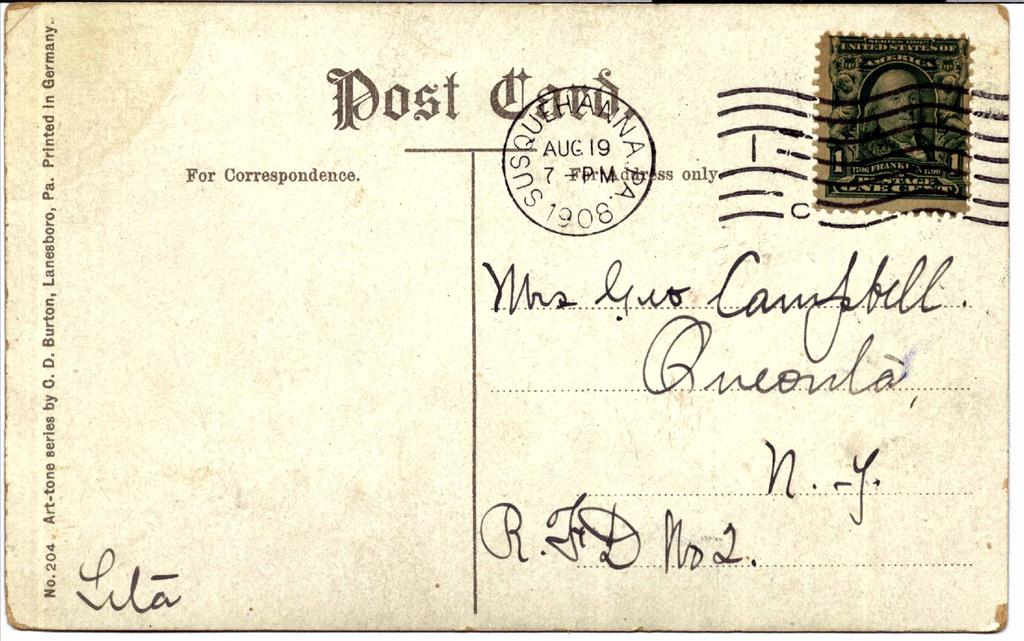 No. 204 . Art-tone series by C. D. Burton, Lanesboro, Pa. Printed in Germany.
Post Card
For Correspondence.
For Address only
SUSQUEHANNA. PA.
AUG 19
7 - PM
1908
SERIES 1902
UNITED STATES OF
AMERICA
1 1
1706 FRANKLIN 1790
POSTAGE
ONE CENT
C
Mrs Geo Campbell.
Oneonta,
N. Y.
R. F. D No 2.
Leta